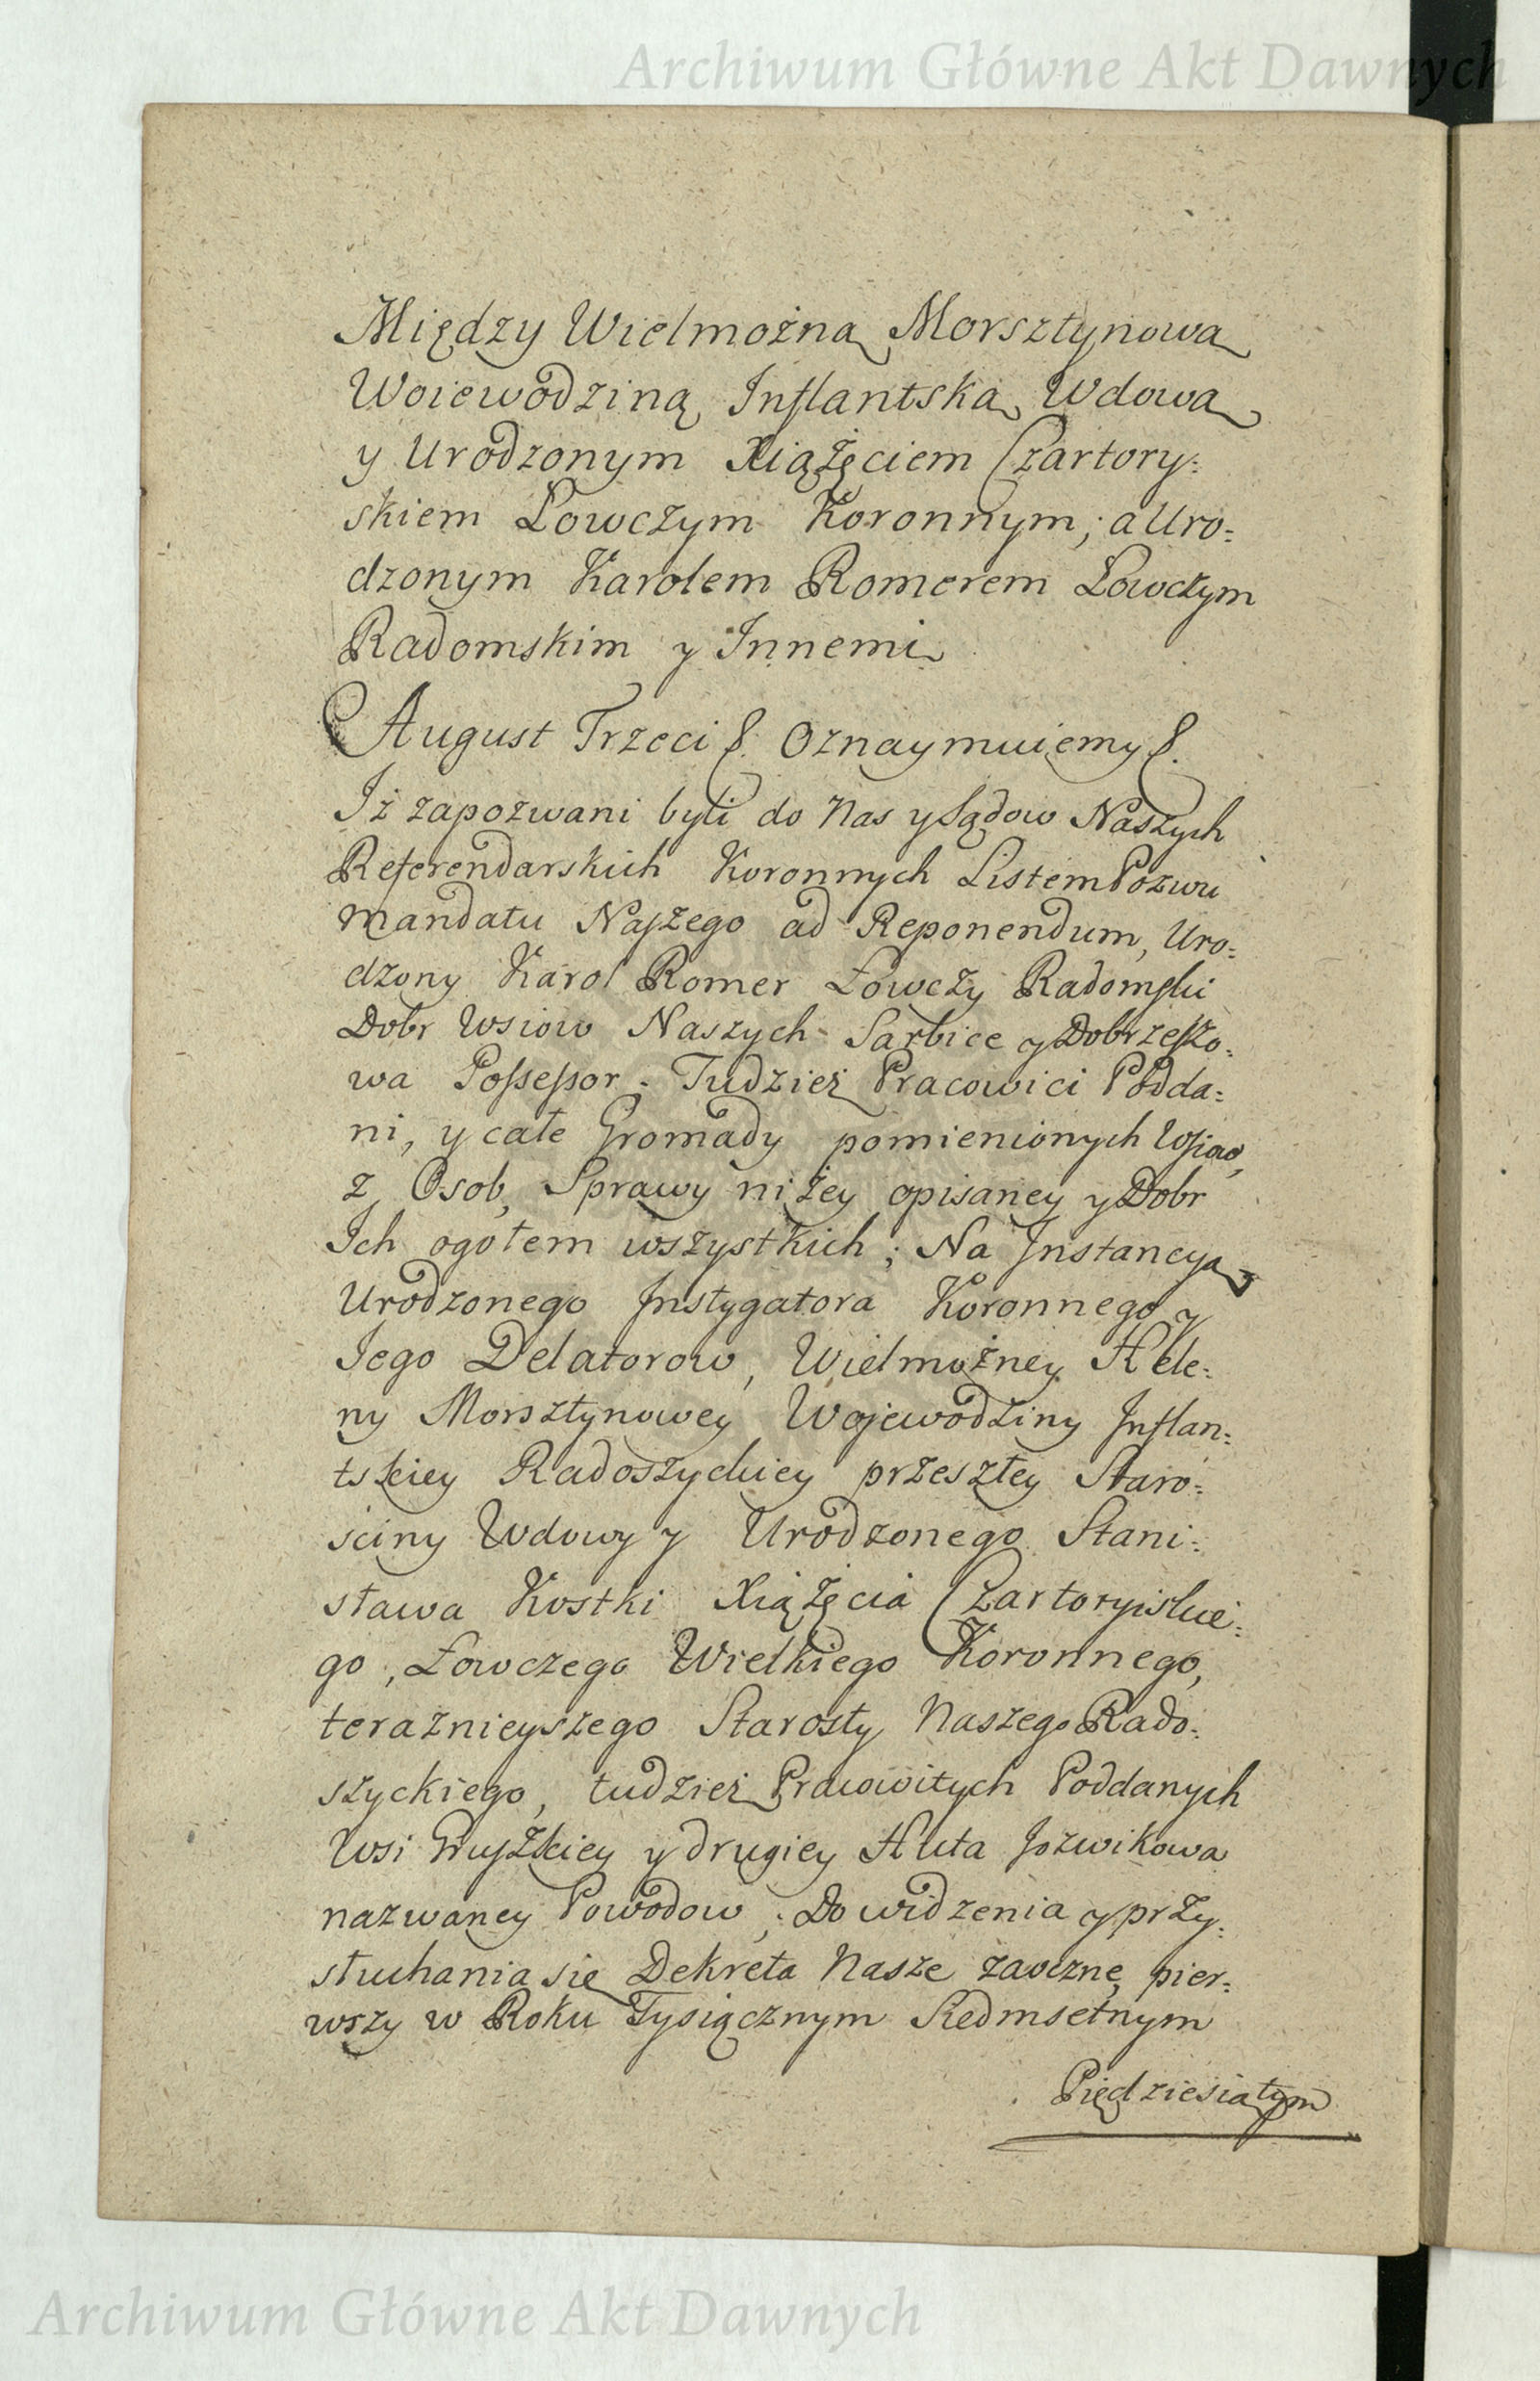 Archiwum Główne Akt Dawnych
Między Wielmożną Morsztynową
Woiewodziną Inflantską Wdową
y Urodzonym Xiążęciem Czartory=
skiem Łowczym Koronnym, a Uro=
dzonym Karolem Romerem Łowczym
Radomskim y Innemi
August Trzeci &. Oznaymuiemy &.
Iż zapozwani byli do Nas y Sądow Naszych
Referendarskich Koronnych Listem Pozwu
Mandatu Naszego ad Reponendum, Uro=
dzony Karol Romer Łowczy Radomski
Dobr Wsiow Naszych Sarbice y Dobrzeszo=
wa Possessor; Tudzież Pracowici Podda=
ni, y całe Gromady pomienionych Wsiow,
z Osob, Sprawy niżey opisaney y Dobr
Ich ogołem wszystkich; Na Instancyą
Urodzonego Instygatora Koronnego y
Jego Delatorow, Wielmożney Hele=
ny Morsztynowey Wojewodziny Inflan=
tskiey Radoszyckiey przeszłey Staro=
ściny Wdowy y Urodzonego Stani=
sława Kostki Xiążęcia Czartoryiskie=
go, Łowczego Wielkiego Koronnego,
teraznieyszego Starosty Naszego Rado=
szyckiego, tudzież Pracowitych Poddanych
Wsi Gruszkiey y drugiey Huta Jozwikowa
nazwaney Powodow; Do widzenia y przy=
słuchania się Dekreta Nasze zaoczne, pier=
wszy w Roku Tysiącznym Siedmsetnym
Pięćdziesiątym
Archiwum Główne Akt Dawnych